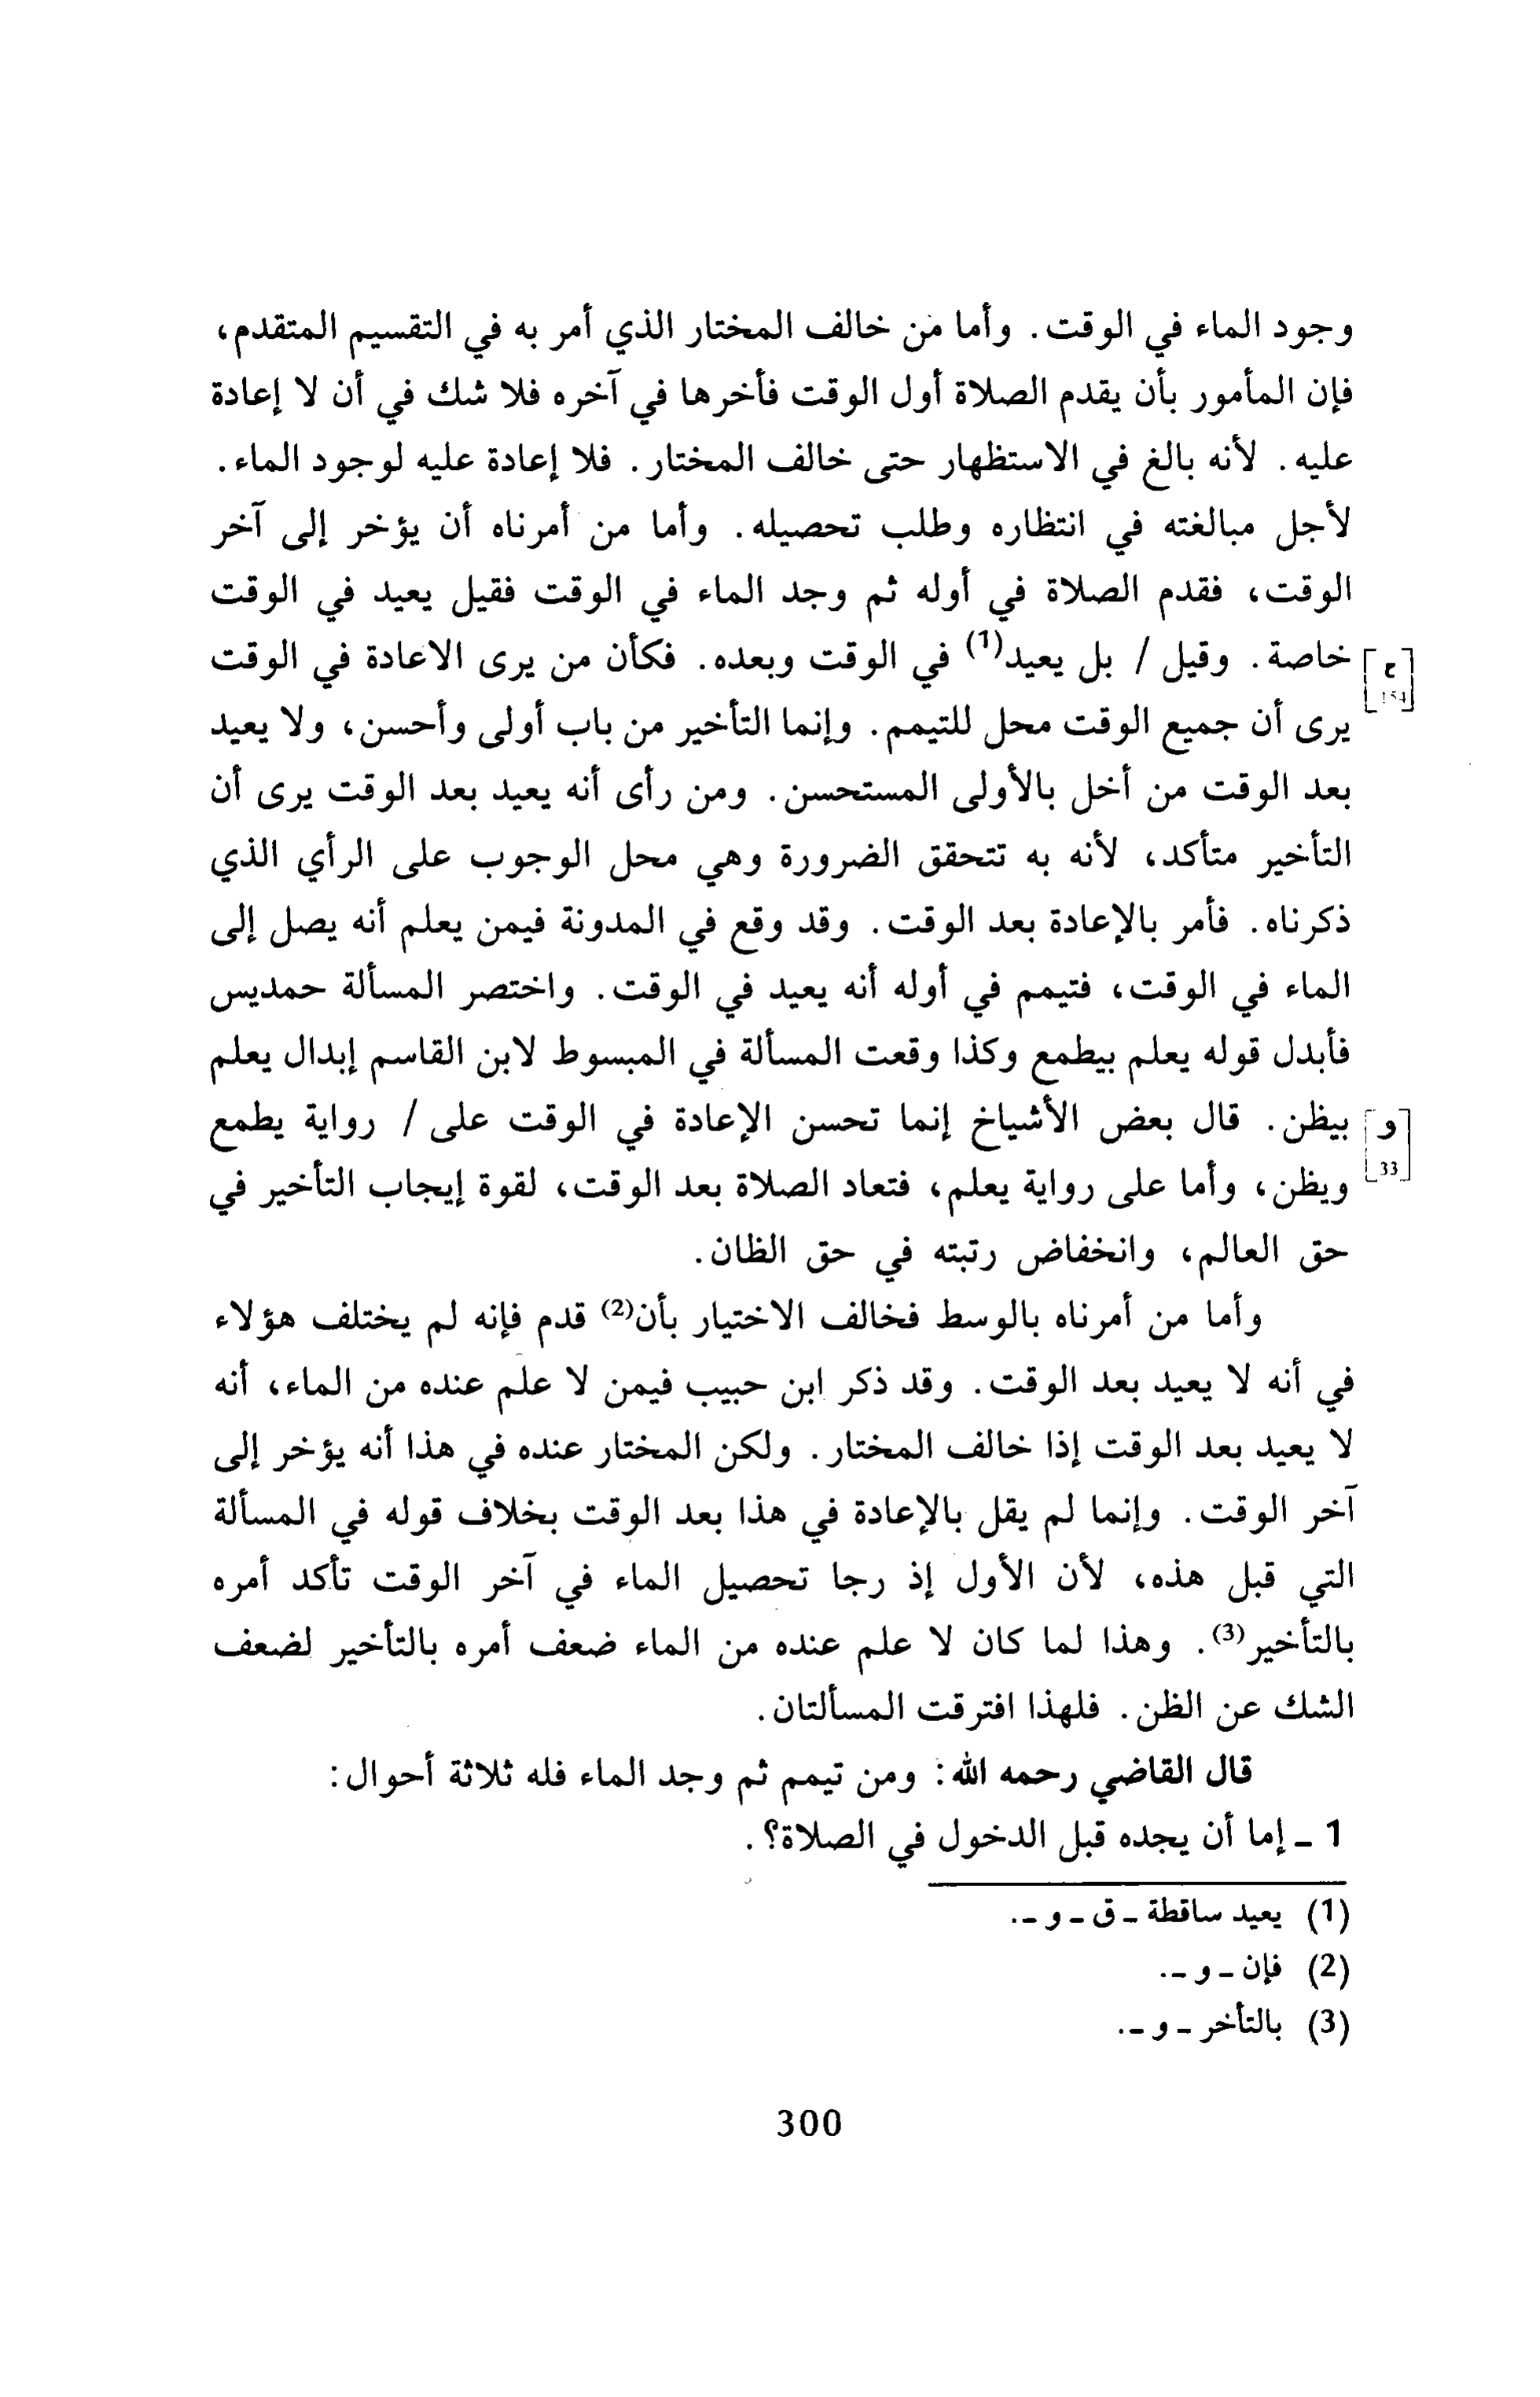 وجود الماء في الوقت. وأما من خالف المختار الذي أمر به في التقسيم المتقدم،
فإن المأمور بأن يقدم الصلاة أول الوقت فأخرها في آخره فلا شك في أن لا إعادة
عليه. لأنه بالغ في الاستظهار حتى خالف المختار. فلا إعادة عليه لوجود الماء.
لأجل مبالغته في انتظاره وطلب تحصيله. وأما من أمرناه أن يؤخر إلى آخر
الوقت، فقدم الصلاة في أوله ثم وجد الماء في الوقت فقيل يعيد في الوقت
خاصة. وقيل / بل يعيد(1) في الوقت وبعده. فكأن من يرى الاعادة في الوقت
[ح]
يرى أن جميع الوقت محل للتيمم. وإنما التأخير من باب أولى وأحسن، ولا يعيد
بعد الوقت من أخل بالأولى المستحسن. ومن رأى أنه يعيد بعد الوقت يرى أن
التأخير متأكد، لأنه به تتحقق الضرورة وهي محل الوجوب على الرأي الذي
ذكرناه. فأمر بالإعادة بعد الوقت. وقد وقع في المدونة فيمن يعلم أنه يصل إلى
الماء في الوقت، فتيمم في أوله أنه يعيد في الوقت. واختصر المسألة حمديس
فأبدل قوله يعلم بيطمع وكذا وقعت المسألة في المبسوط لابن القاسم إبدال يعلم
بيظن. قال بعض الأشياخ إنما تحسن الإعادة في الوقت على / رواية يطمع
[و 33]
ويظن، وأما على رواية يعلم، فتعاد الصلاة بعد الوقت، لقوة إيجاب التأخير في
حق العالم، وانخفاض رتبته في حق الظان.
وأما من أمرناه بالوسط فخالف الاختيار بأن(2) قدم فإنه لم يختلف هؤلاء
في أنه لا يعيد بعد الوقت. وقد ذكر ابن حبيب فيمن لا علم عنده من الماء، أنه
لا يعيد بعد الوقت إذا خالف المختار. ولكن المختار عنده في هذا أنه يؤخر إلى
آخر الوقت. وإنما لم يقل بالإعادة في هذا بعد الوقت بخلاف قوله في المسألة
التي قبل هذه، لأن الأول إذ رجا تحصيل الماء في آخر الوقت تأكد أمره
بالتأخير(3). وهذا لما كان لا علم عنده من الماء ضعف أمره بالتأخير لضعف
الشك عن الظن. فلهذا افترقت المسألتان.
قال القاضي رحمه الله: ومن تيمم ثم وجد الماء فله ثلاثة أحوال:
1 - إما أن يجده قبل الدخول في الصلاة؟.
(1) يعيد ساقطة - ق - و -.
(2) فإن - و -.
(3) بالتأخر - و -.
300